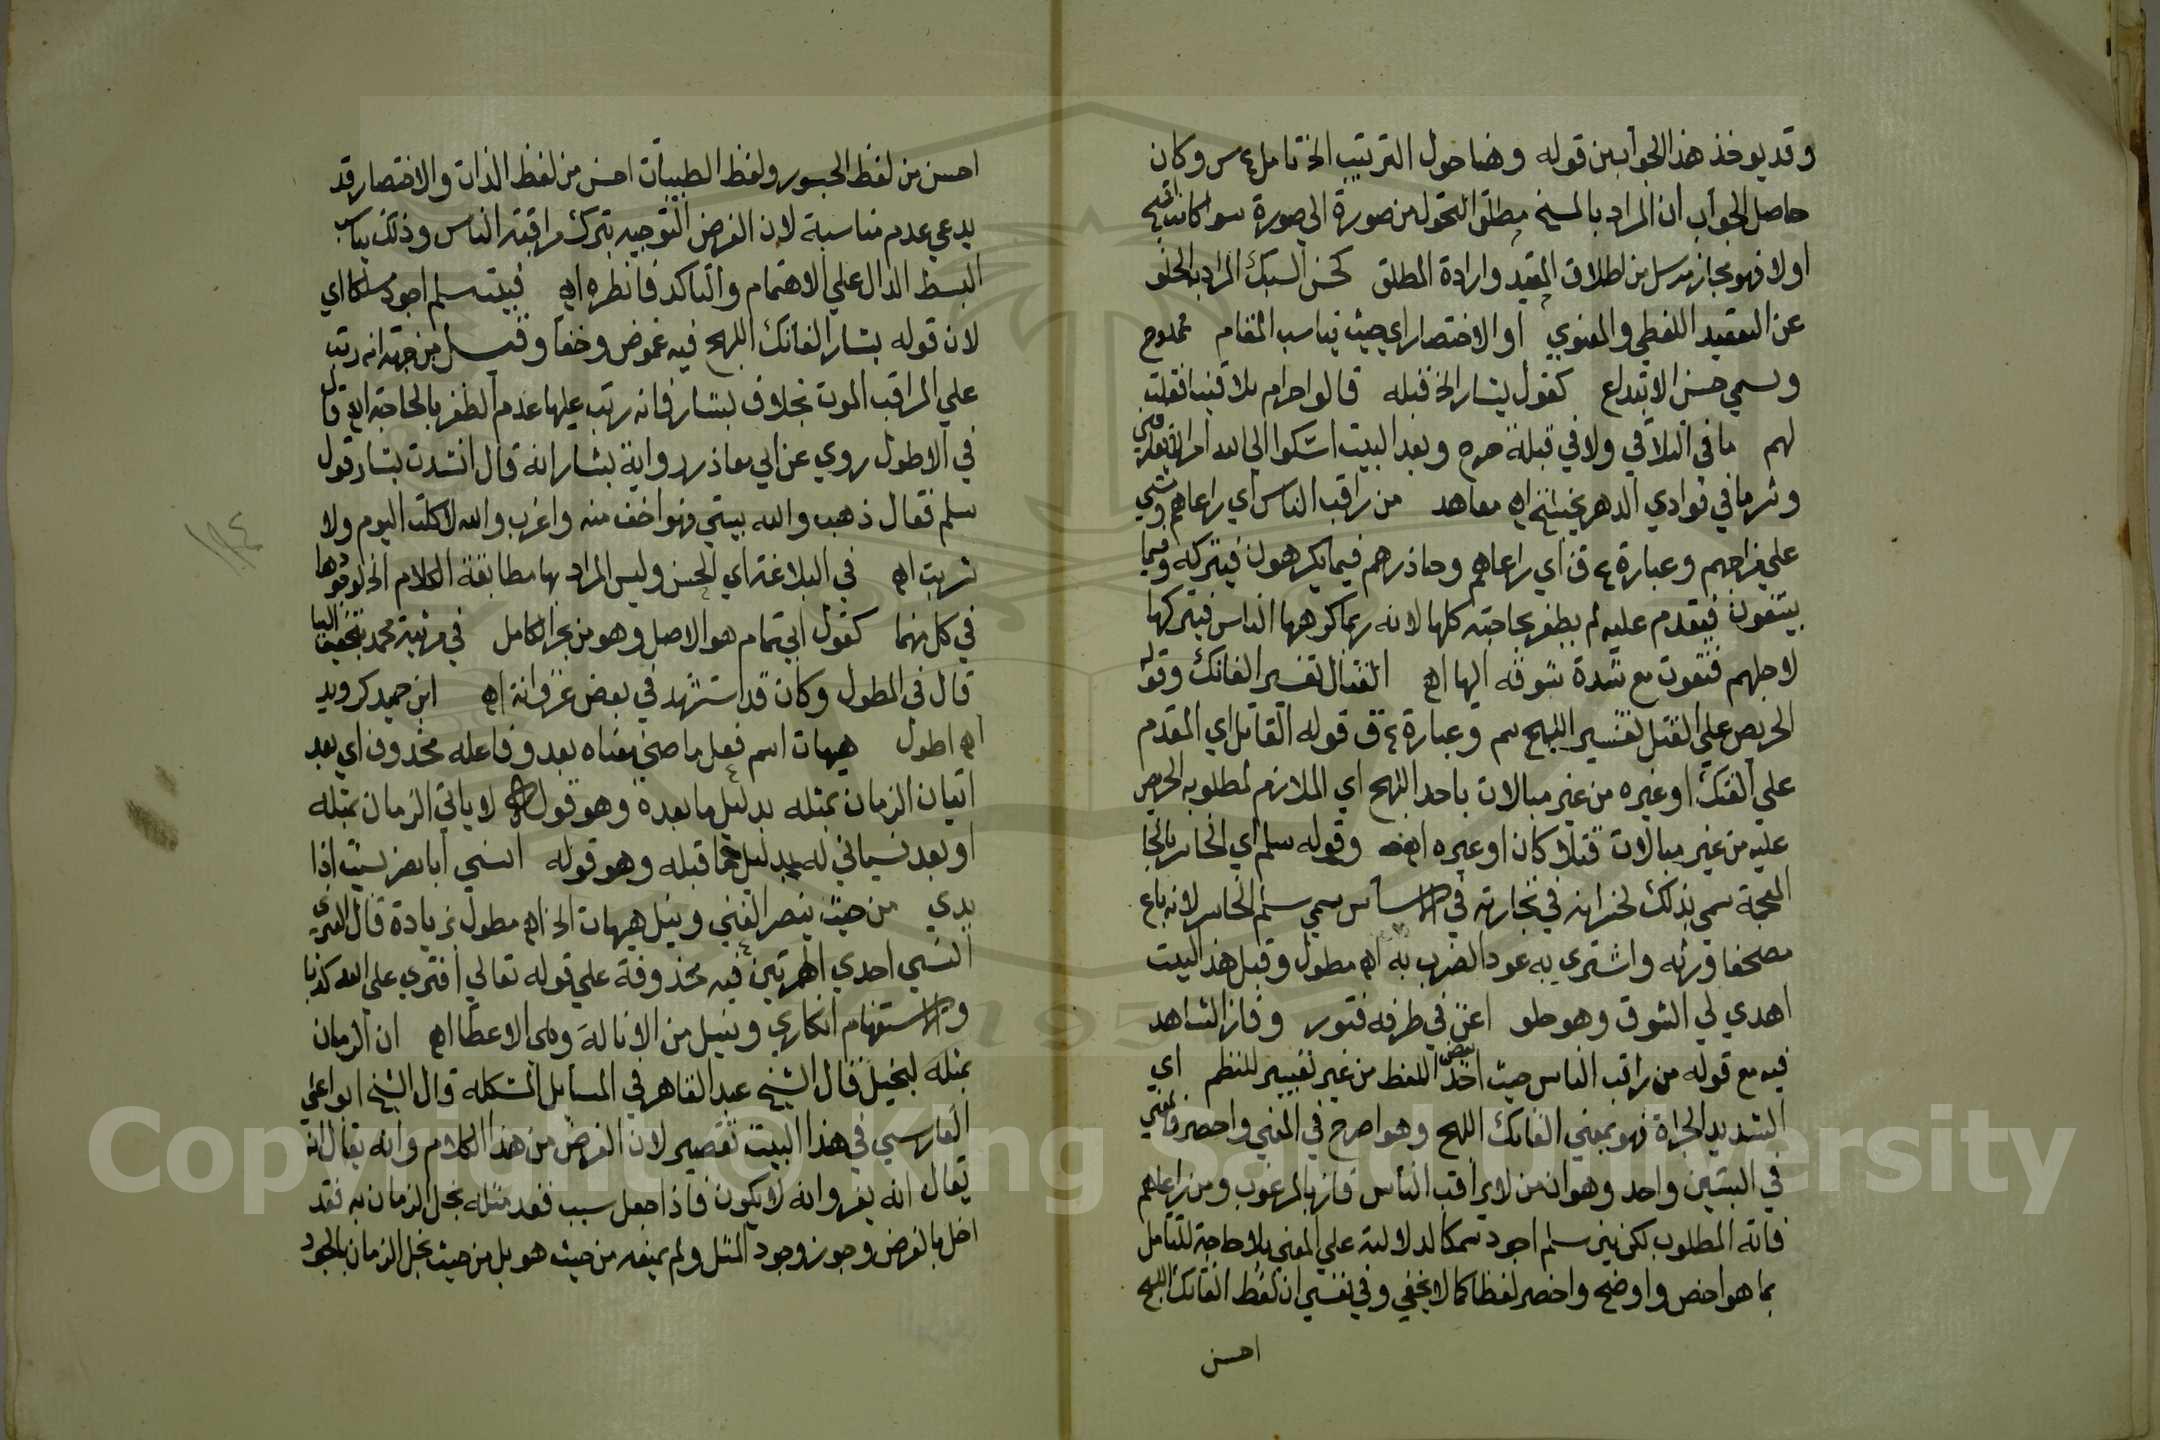 وقد يوخذ هذا الجواب من قوله وهنا حول الترتيب الخ تامل ع س وكان
حاصل الجواب ان المراد بالمسخ مطلق التحول من صورة الي صورة سوا كانت اقبح
اولا فهو مجاز مرسل من اطلاق المقيد وارادة المطلق كحسن السبك المراد به الخلو
عن التعقيد اللفظي والمعنوي او الاختصار اي حيث يناسب المقام ممدوح
وسمي حسن الابتداع كقول بشار الخ قبله قالوا حرام تلاقينا فقلت
لهم ما في التلاقي ولا في قبلة حرج وبعد البيت اشكوا الي الله
معاهد من راقب الناس اي راعاهم ومشي
علي مزاجهم وعبارة ع ق اي راعاهم وحاذرهم فيما يكرهون فيتركه وفيما
يبتغون فيقدم عليه لم يظفر بحاجته كلها لانه ربما كرهها الناس فيتركها
لاجلهم فتفوت مع شدة شوقه اليها اه القتال تفسير الفاتك وقوله
الحريص علي القتل تفسير اللهج سم وعبارة ع ق قوله القاتل اي المقدم
علي الفتك او غيره من غير مبالات باحد اللهج اي الملازم لمطلوبه الحريص
عليه من غير مبالات قتلا كان او غيره وقوله سلم اي الخاسر بالخا
المعجمة سمي بذلك لخسرانه في تجارته في الاساس سمي سلم الخاسر لانه باع
مصحفا ورثه واشتري به عودا لضرب به اه مطول وقبل هذا البيت
اهدي لي الشوق وهو حلو اغن في طرفه فتور وفاز الشاهد
فيه مع قوله من راقب الناس حيث اخذ بعض اللفظ من غير تغيير للنظم اي
الشديد الجراة فهو بمعني الفاتك اللهج وهو اصرح في المعني واخصر فالمعني
في البيتين واحد وهو ان من لا يراقب الناس فاز بالمرغوب ومن راعاهم
فاته المطلوب لكن بيت سلم اجود سبكا لدلالته علي المعني بلا حاجة للتامل
بما هو اخص واوضح واخصر لفظا كما لا يخفي وفي نفسي ان لفظ الفاتك اللهج
احسن
احسن من لفظ الجسور ولفظ الطيبات احسن من لفظ الذات والاختصار قد
يدعي عدم مناسبة لان الغرض التوجيه بترك مراقبة الناس وذلك يناسب
البسط الدال علي الاهتمام والتاكد فانظره اه فبيت سلم اجود سبكا اي
لان قوله بشار الفاتك اللهج فيه غموض وخفا وقيل من جهة انه رتب
علي المراقب الموت بخلاف بشار فانه رتب عليها عدم الظفر بالحاجة اه قال
في الاطول روي عن ابي معاذ رواية بشار انه قال انشدت بشار قول
سلم فقال ذهب والله بيتي فهو اخف منه واعزب والله لا اكلت اليوم ولا
شربت اه في البلاغة اي الحسن وليس المراد بها مطابقة الكلام الخ لوجودها
في كل منهما كقول ابي تمام هو الاصل وهو من بحر الكامل في مرثية محمد
قال في المطول وكان قد استشهد في بعض غزواته اه ابن حميد
اه اطول هيهات اسم فعل ماضي معناه بعد وفاعله محذوف اي بعد
اتيان الزمان بمثله بدليل ما بعده وهو قوله لا ياتي الزمان بمثله
او بعد نسياني له بدليل ما قبله وهو قوله انسي ابا نصر نسيت اذا
يدي من حيث ينصر الفتي وينيل هيهات الخ اه مطول بزيادة قال الفنري
انسي احدي الهمزتين فيه محذوفة علي قوله تعالي افتري علي الله كذبا
والاستفهام انكاري وينيل من الانالة وهي الاعطا اه ان الزمان
بمثله لبخيل قال الشيخ عبد القاهر في المسايل المشكله قال الشيخ ابو علي
الفارسي في هذا البيت تقصير لان الغرض من هذا الكلام وانه يقال انه
يقال انه يغر وانه لا يكون فاذا جعل سبب فقد مثله بخل الزمان به فقد
اخل بالغرض وجوز وجود المثل ولم يمنعه من حيث هو بل من حيث بخل الزمان بالجود
١٨٤
Copyright © King Saud University
1957